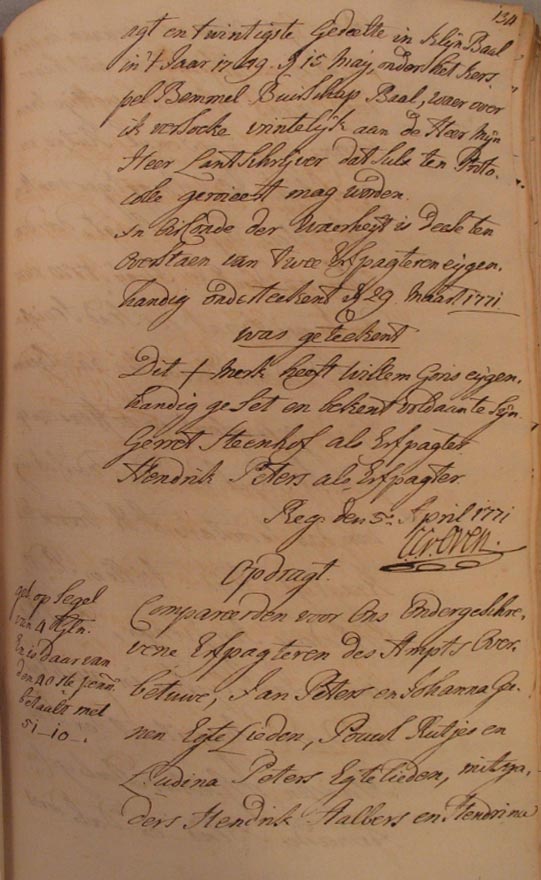 134
agt en twintigste Gedeelte in Klijn Baal
in 't Jaar 1749 15 maij, onder het Kers
pel Bemmel Buirschap Baal, waer over
ik versoeke vrintelijk aan de Heer Mijn
Heer Lantschrijver dat sulx ten Proto-
colle geroieert mag worden.
in oirconde der Waerheijt is deese ten
overstaen van twee Erfpagteren eijgen-
handig onderteekent 29 Maart 1771.
was geteekent
Dit + merk heeft Willem Goris eijgen-
handig geset en bekent voldaan te sijn
Gerret Steenhof als Erfpagter
Hendrik Peters als Erfpagter
Reg. den 5e April 1771
Opdragt.
Compareerden voor Ons Ondergeschre-
vene Erfpagteren des Ampts Over-
betuwe, Jan Peters en Johanna Ge-
nen Egte Lieden, Pouul Rutjes en
Peters Egtelieden, mitsga-
ders Hendrik Halbers en Hendrina
ges. op Segel
van 4
En is daar van
den 40ste penn.
betaalt met
51-10-.